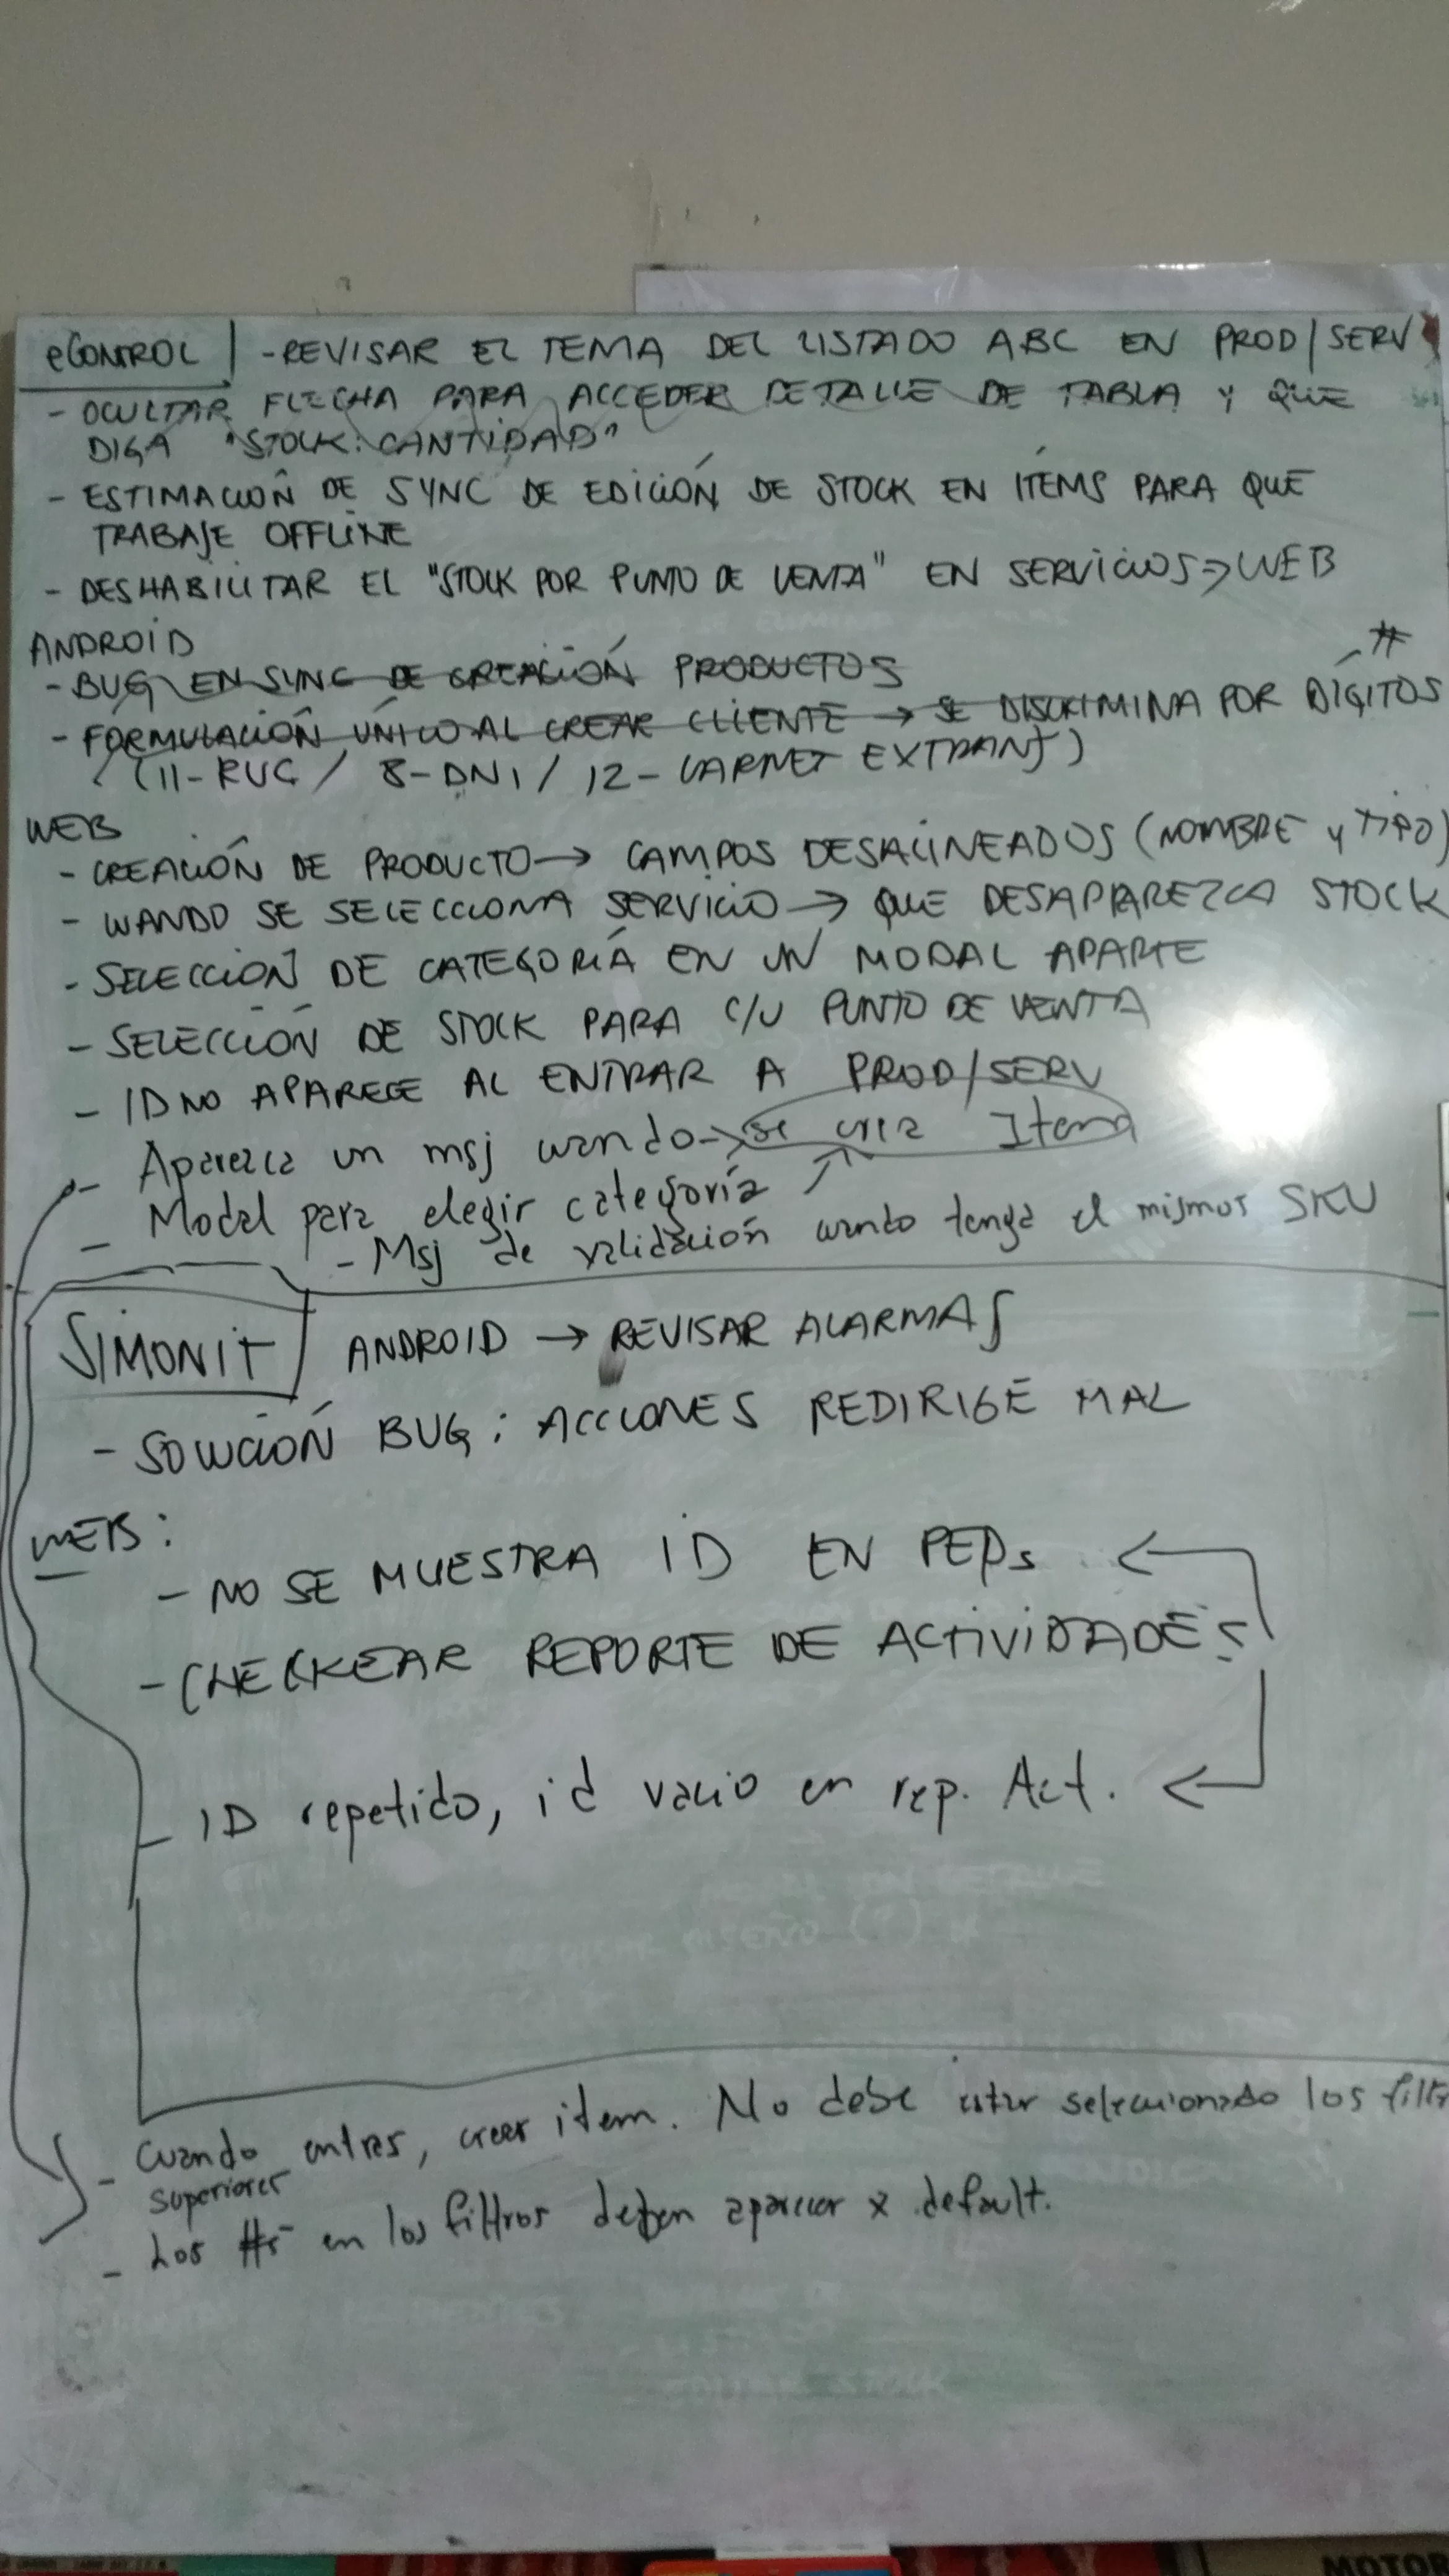 eCONTROL | - REVISAR EL TEMA DEL LISTADO ABC EN PROD/SERV
- OCULTAR FLECHA PARA ACCEDER DETALLE DE TABLA Y QUE
DIGA "STOCK: CANTIDAD"
- ESTIMACIÓN DE SYNC DE EDICIÓN DE STOCK EN ITEMS PARA QUE
TRABAJE OFFLINE
- DESHABILITAR EL "STOCK POR PUNTO DE VENTA" EN SERVICIOS => WEB
ANDROID
- BUG EN SYNC DE CREACIÓN PRODUCTOS
#
- FORMULACIÓN ÚNICO AL CREAR CLIENTE → SE DISCRIMINA POR DÍGITOS
(11-RUC / 8-DNI / 12-CARNET EXTRANJ)
WEB
- CREACIÓN DE PRODUCTO → CAMPOS DESALINEADOS (NOMBRE Y TIPO)
- CUANDO SE SELECCIONA SERVICIO → QUE DESAPAREZCA STOCK
- SELECCIÓN DE CATEGORÍA EN UN MODAL APARTE
- SELECCIÓN DE STOCK PARA C/U PUNTO DE VENTA
- ID NO APARECE AL ENTRAR A PROD/SERV
- Aparezca un msj cuando → se crea Item
- Modal para elegir categoría
- Msj de validación cuando tenga el mismos SKU
SIMONIT | ANDROID → REVISAR ALARMAS
- SOLUCIÓN BUG: ACCIONES REDIRIGE MAL
WEB:
- NO SE MUESTRA ID EN PEPs
- CHECKEAR REPORTE DE ACTIVIDADES
- ID repetido, id vacio en rep. Act.
- Cuando entres, crear item. No debe estar seleccionado los filt
superiores
- Los #s en los filtros deben aparecer x default.
MOTOR